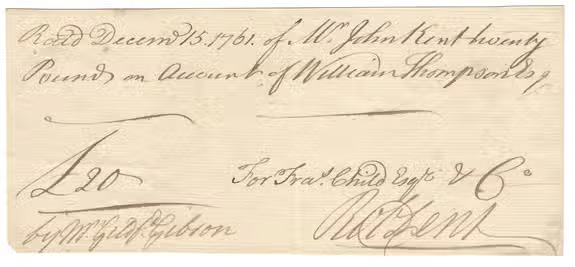 Rec̄d Decemr. 15. 1761. of Mr. John Kent twenty
Pounds on Account of William Thompson Esq
£20
For Fras. Child Esqr. & Co.
by Mr. Gibson
Robt. Dent